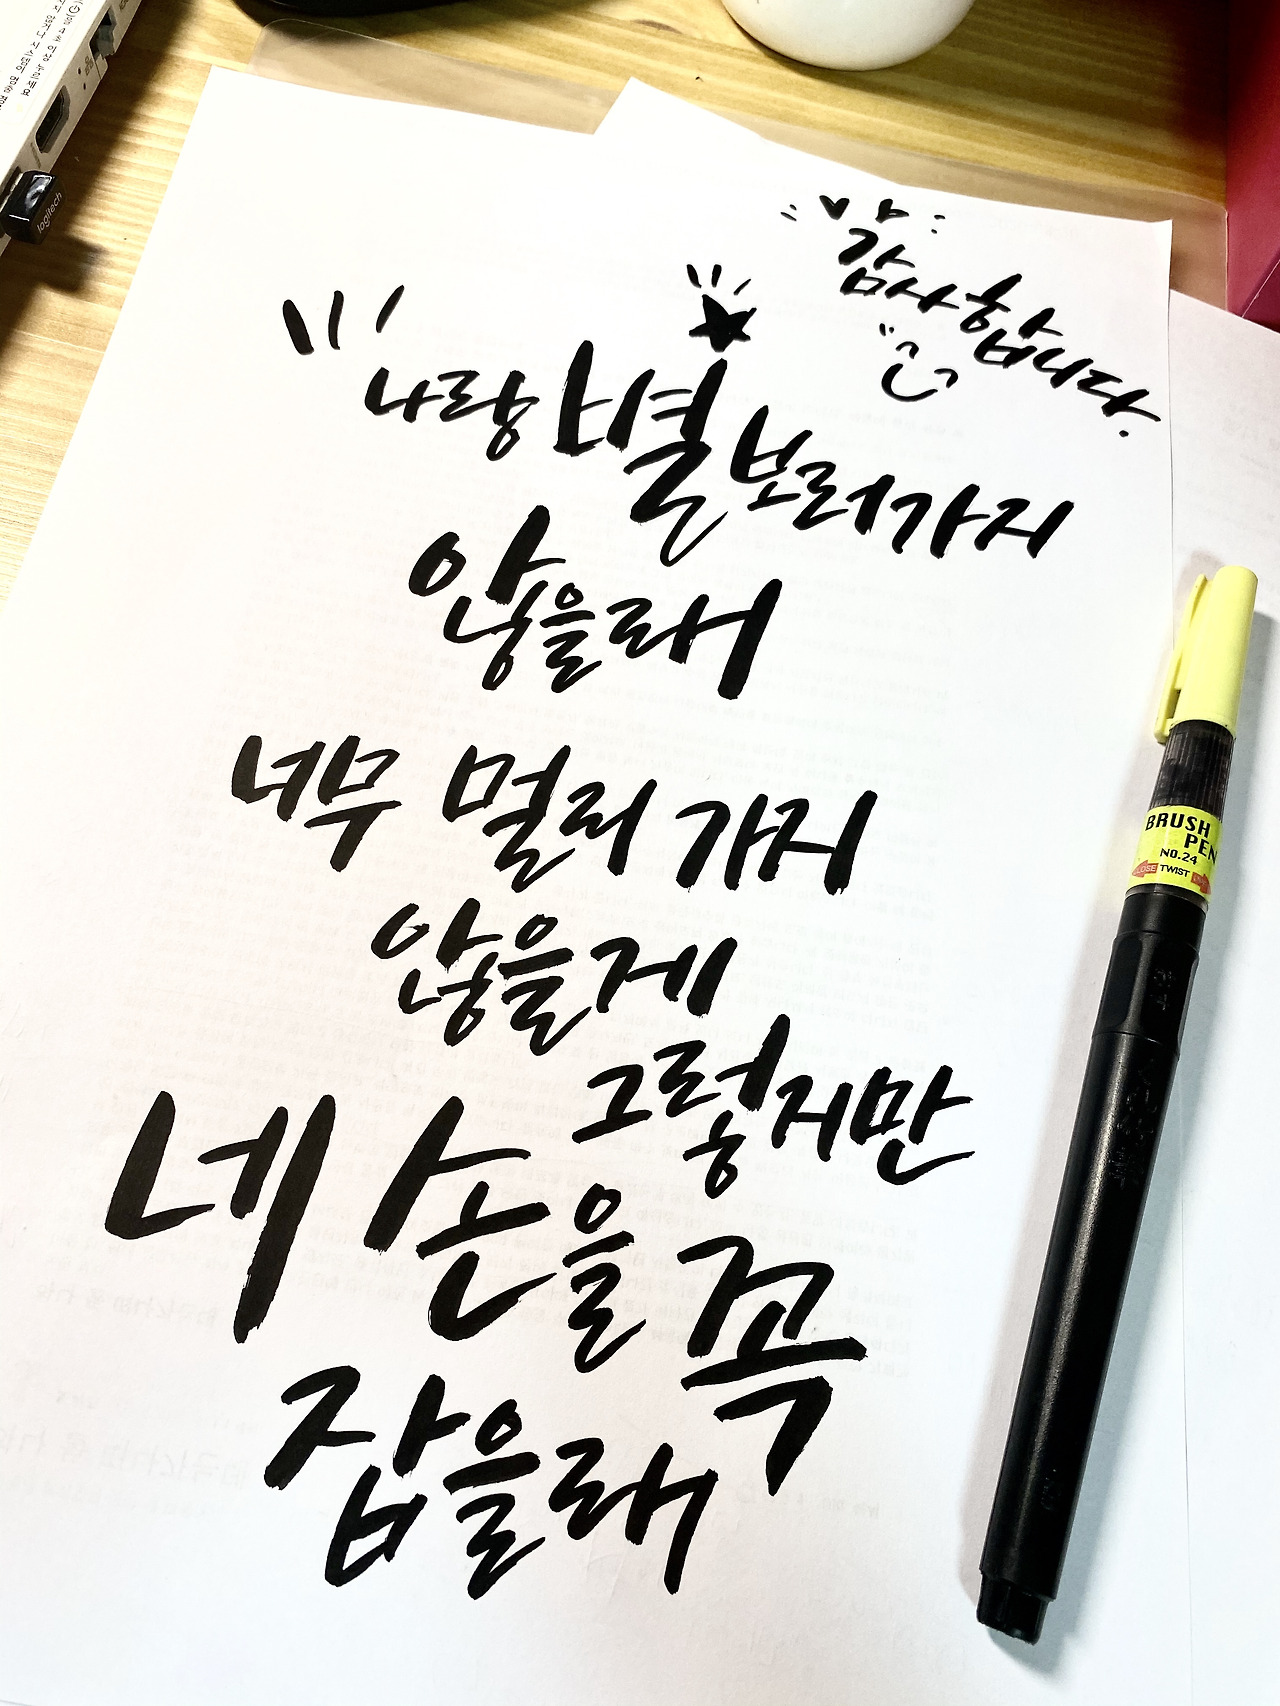 감사합니다.
나랑 별 보러가지
않을래
너무 멀리 가지
않을게
그렇지만
네 손을 꼭
잡을래
BRUSH
PEN
NO.24
CLOSE TWIST
logitech